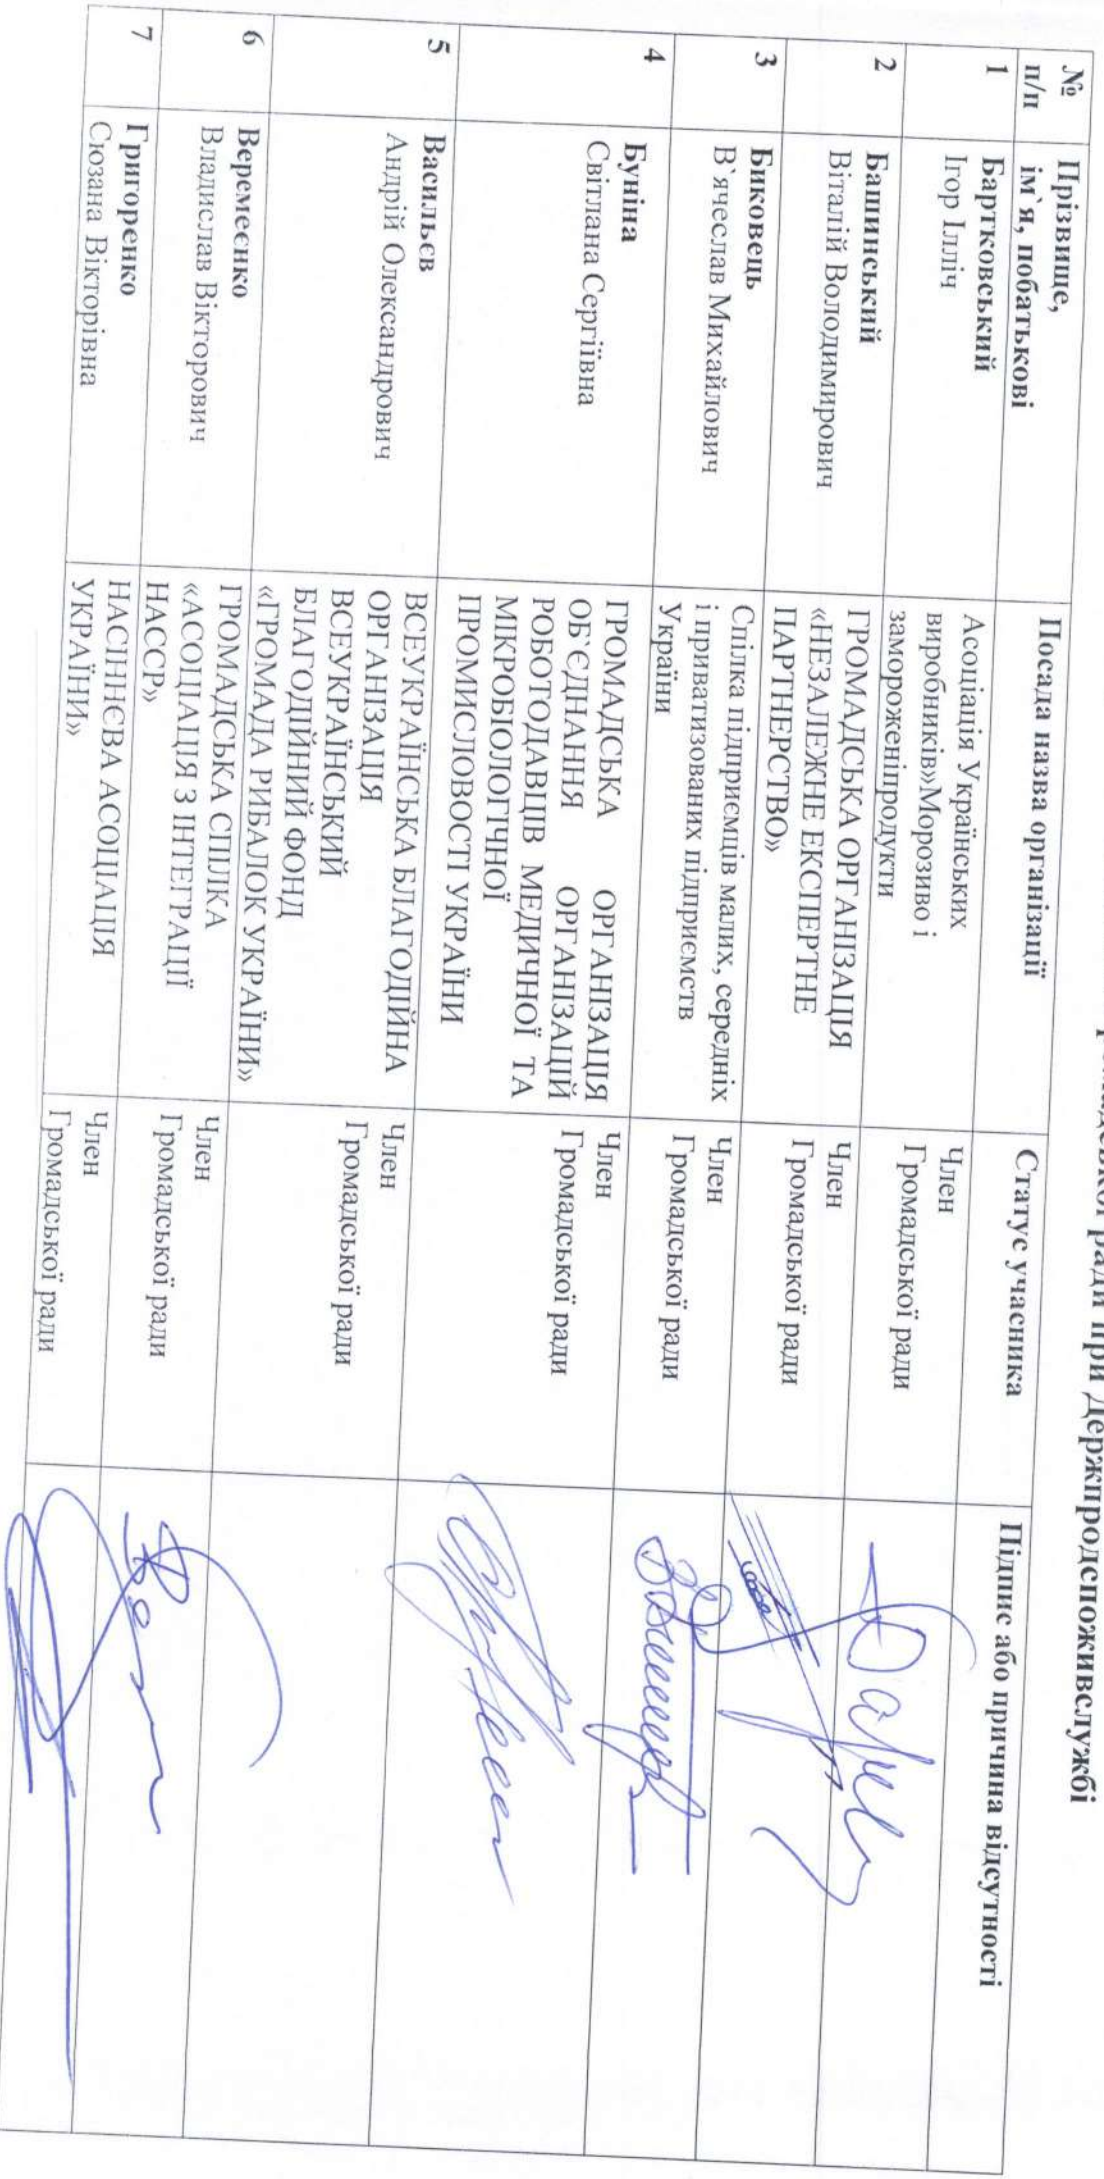 ради при Держпродспоживслужбі
№
п/п
Прізвище,
ім`я, побатькові
Посада назва організації
Статус учасника
Підпис або причина відсутності
1
Бартковський
Ігор Ілліч
Асоціація Українських
виробників»Морозиво і
замороженіпродукти
Член
Громадської ради
2
Башинський
Віталій Володимирович
ГРОМАДСЬКА ОРГАНІЗАЦІЯ
«НЕЗАЛЕЖНЕ ЕКСПЕРТНЕ
ПАРТНЕРСТВО»
Член
Громадської ради
3
Биковець
В`ячеслав Михайлович
Спілка підприємців малих, середніх
і приватизованих підприємств
України
Член
Громадської ради
4
Буніна
Світлана Сергіївна
ГРОМАДСЬКА ОРГАНІЗАЦІЯ
ОБ`ЄДНАННЯ ОРГАНІЗАЦІЙ
РОБОТОДАВЦІВ МЕДИЧНОЇ ТА
МІКРОБІОЛОГІЧНОЇ
ПРОМИСЛОВОСТІ УКРАЇНИ
Член
Громадської ради
5
Васильєв
Андрій Олександрович
ВСЕУКРАЇНСЬКА БЛАГОДІЙНА
ОРГАНІЗАЦІЯ
ВСЕУКРАЇНСЬКИЙ
БЛАГОДІЙНИЙ ФОНД
«ГРОМАДА РИБАЛОК УКРАЇНИ»
Член
Громадської ради
6
Веремеєнко
Владислав Вікторович
ГРОМАДСЬКА СПІЛКА
«АСОЦІАЦІЯ З ІНТЕГРАЦІЇ
НАССР»
Член
Громадської ради
7
Григоренко
Сюзана Вікторівна
НАСІННЄВА АСОЦІАЦІЯ
УКРАЇНИ»
Член
Громадської ради